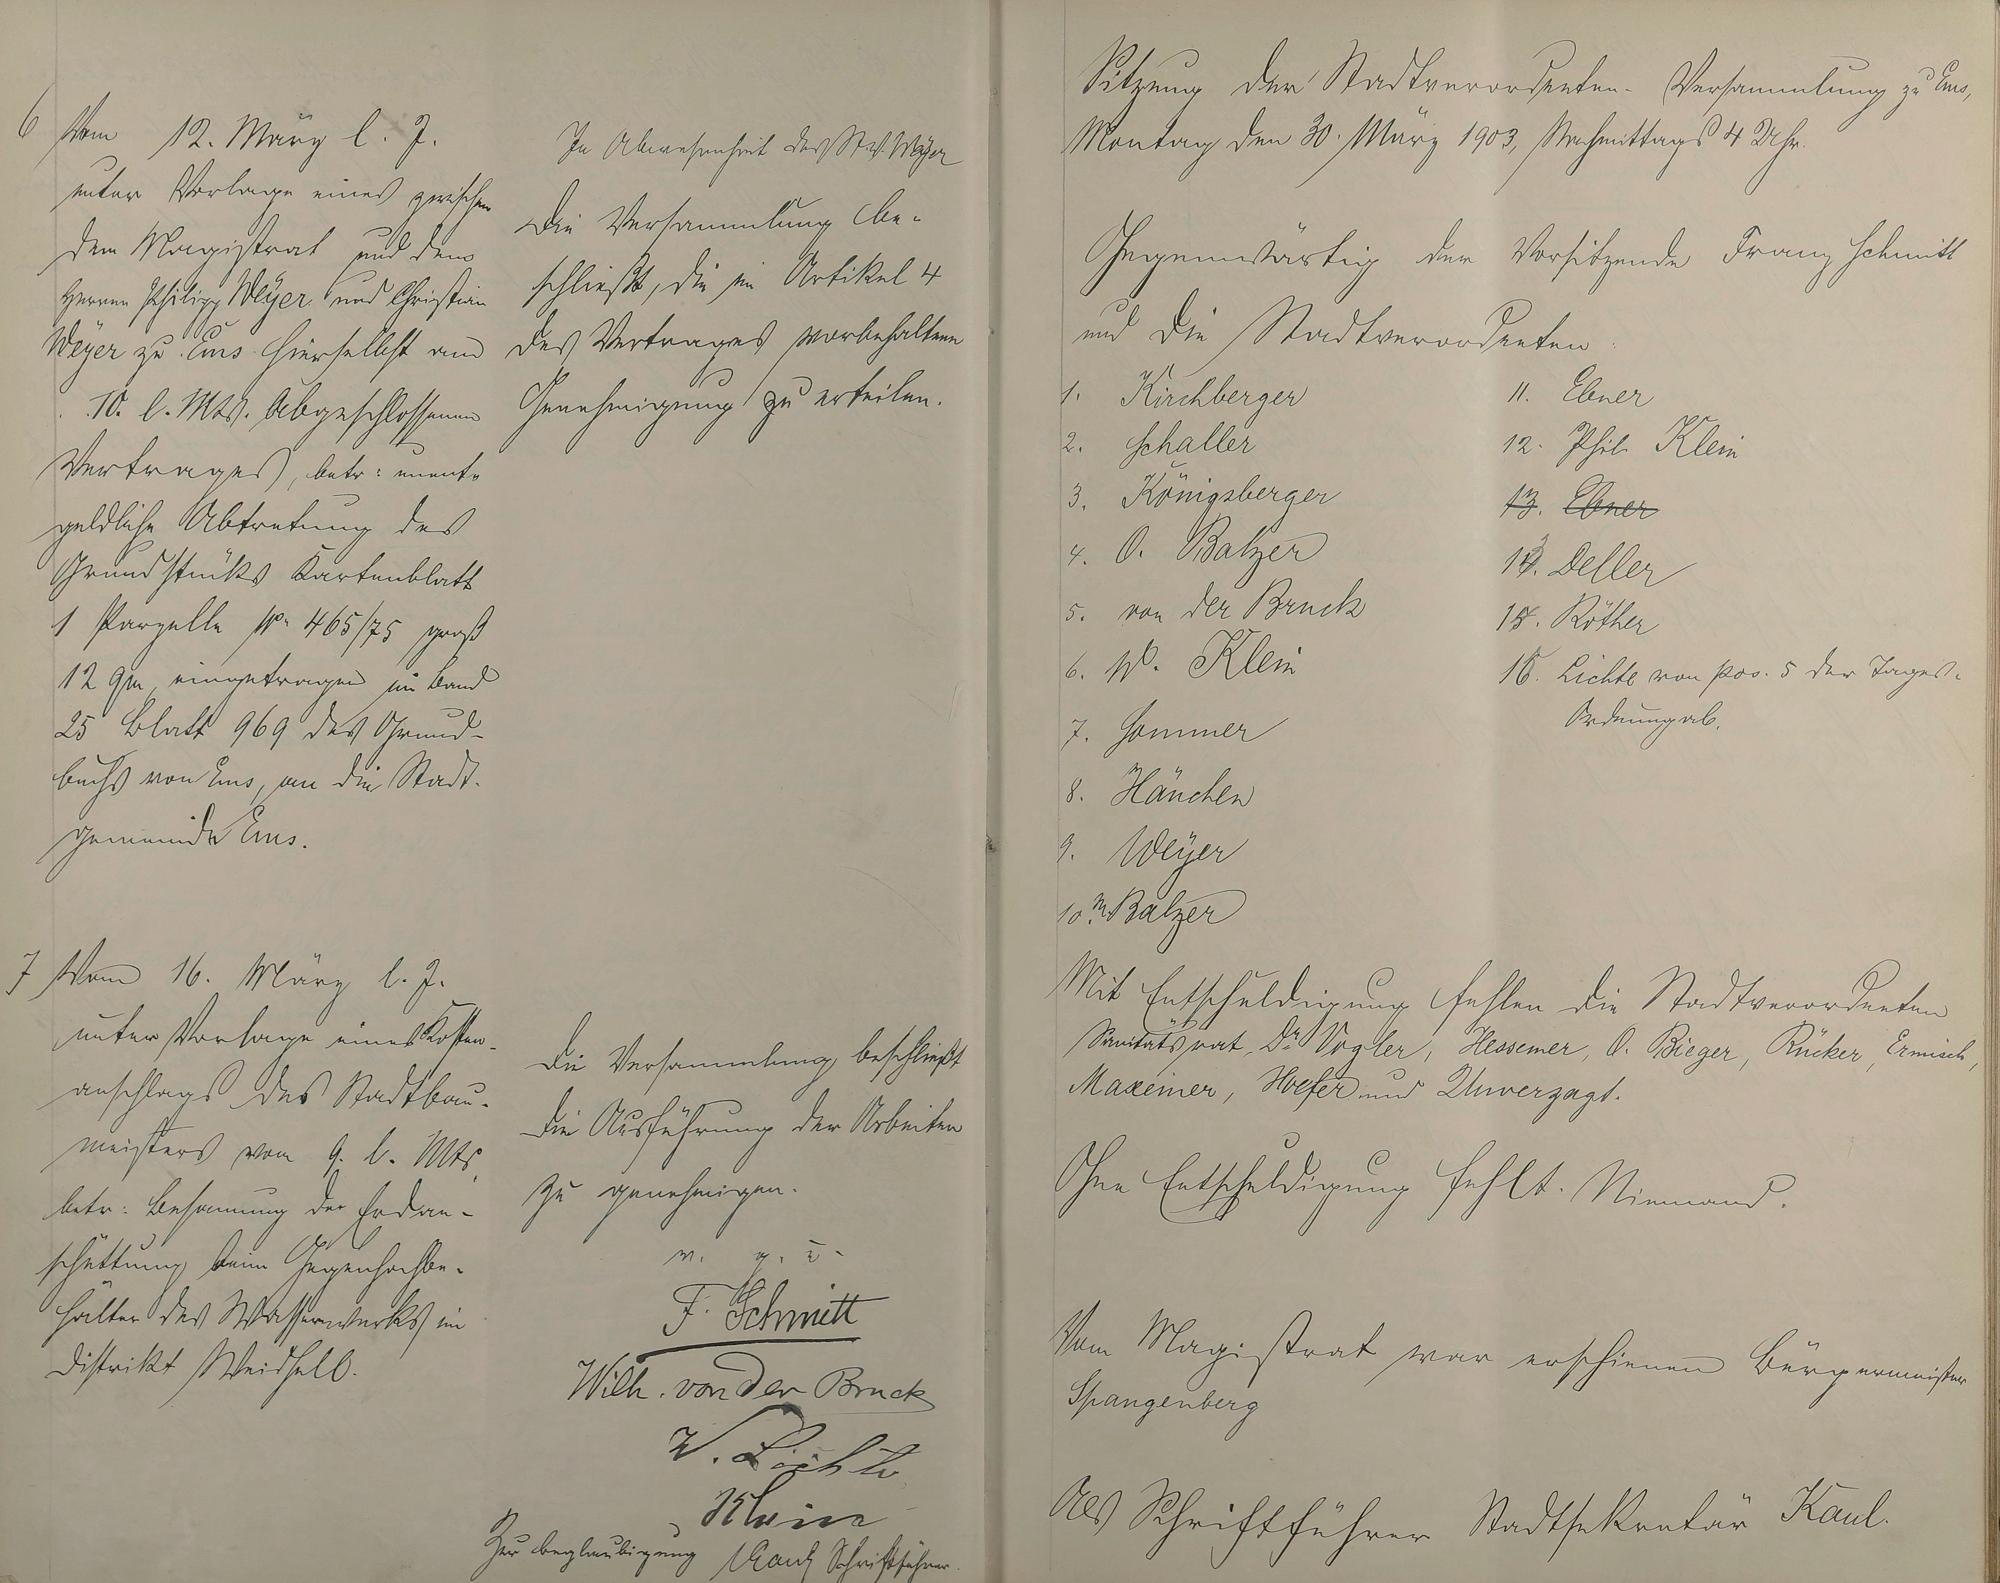 6 Vom 12. März l. J.
unter Vorlage eines zwischen
dem Magistrat und dem
Herren Philipp Weÿer und Christian
Weÿer zu Ems hierselbst am
10. l. Mts. abgeschlossenen
Vertrages, betr: unent-
geldliche Abtretung des
Grundstüks Kartenblatt
1 Parzelle No 465/75 groß
12 qm, eingetragen im Band
25 Blatt 969 des Grund-
buchs von Ems, an die Stadt-
gemeinde Ems.
In Abwesenheit des Stv. Weÿer
Die Versammlung be-
schließt, die in Artikel 4
des Vertrages vorbehaltene
Genehmigung zu erteilen.
7 Vom 16. März l. J.
unter Vorlage eines Kosten-
anschlags des Stadtbau-
meisters vom 9. l. Mts.
betr: Besamung der Erdan-
schüttung beim Gegenhochbe-
hälter des Wasserwerks im
Distrikt Weidhell.
Die Versammlung beschließt
die Ausführung der Arbeiten
zu genehmigen.
v. g. u.
F. Schmitt
Wilh. von der Bruck
W. Lichte
Klein
Zur Beglaubigung Kaul Schriftführer.
Sitzung der Stadtverordneten-Versammlung zu Ems,
Montag den 30. März 1903, Nachmittags 4 Uhr.
Gegenwärtig der Vorsitzende Franz Schmitt
und die Stadtverordneten:
1. Kirchberger
2. Schaller
3. Königsberger
4. O. Balzer
5. von der Bruck
6. W. Klein
7. Sommer
8. Hänchen
9. Weÿer
10. M. Balzer
11. Ebner
12. Phil. Klein
13. Ebner
13. Deller
14. Röther
15. Lichte von pos. 5 der Tages-
Ordnung ab.
Mit Entschuldigung fehlen die Stadtverordneten
Sanitätsrat Dr Vogler, Hessemer, O. Bieger, Rücker, Ermisch,
Maxeiner, Hoefer und Unverzagt.
Ohne Entschuldigung fehlt. Niemand.
Vom Magistrat war erschienen Bürgermeister
Spangenberg
Als Schriftführer Stadtsekretär Kaul.